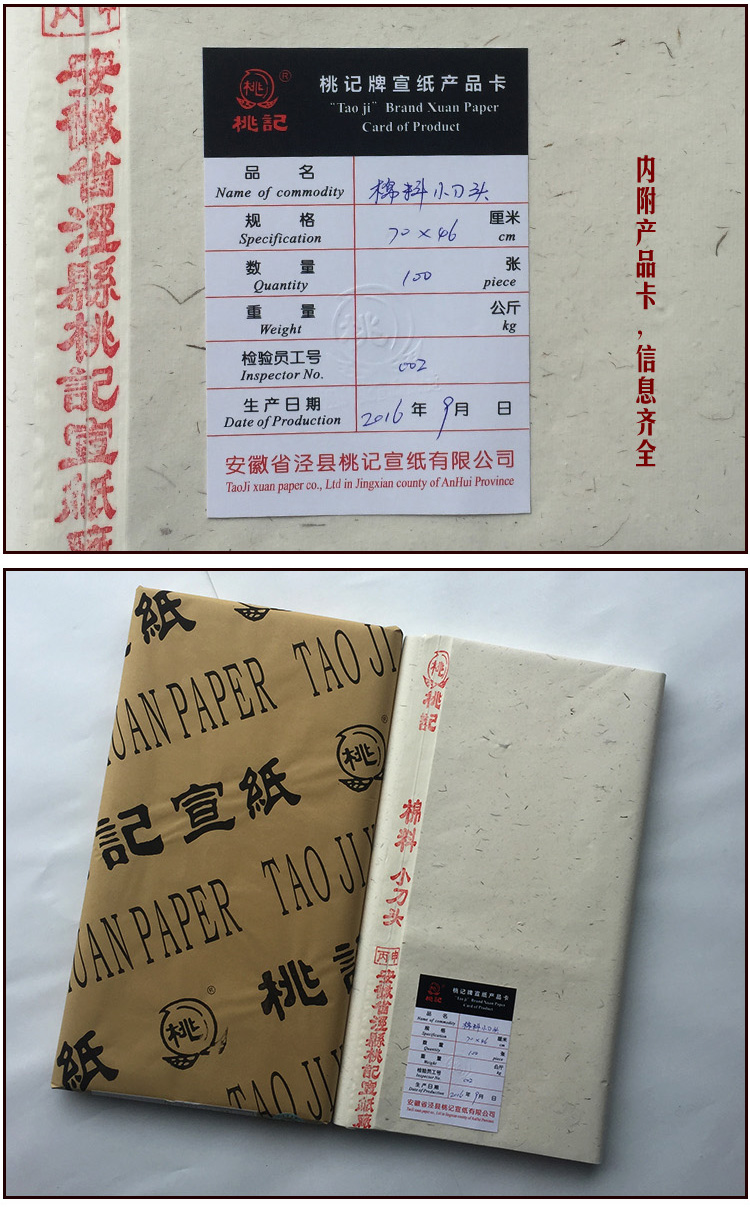 丙申
安徽省泾縣桃記宣紙廠
桃
®
桃記
桃记牌宣纸产品卡
"Tao ji" Brand Xuan Paper
Card of Product
品 名
Name of commodity
棉料小刀头
规 格
Specification
70×46
厘米
cm
数 量
Quantity
100
张
piece
重 量
Weight
公斤
kg
桃
检验员工号
Inspector No.
002
生产日期
Date of Production
2016年9月 日
安徽省泾县桃记宣纸有限公司
TaoJi xuan paper co., Ltd in Jingxian county of AnHui Province
内附产品卡，信息齐全
紙
UAN PAPER TAO JI
桃
®
記宣紙
UAN PAPER TAO JI
桃記
桃
®
紙
TAO JI
桃
桃記
棉料 小刀头
丙申
安徽省泾縣桃記宣紙廠
桃記
桃记牌宣纸产品卡
"Tao ji" Brand Xuan Paper
Card of Product
品 名
Name of commodity
棉料小刀头
规 格
Specification
70×46
厘米
cm
数 量
Quantity
100
张
piece
重 量
Weight
公斤
kg
检验员工号
Inspector No.
002
生产日期
Date of Production
2016年9月 日
安徽省泾县桃记宣纸有限公司
TaoJi xuan paper co., Ltd in Jingxian county of AnHui Province